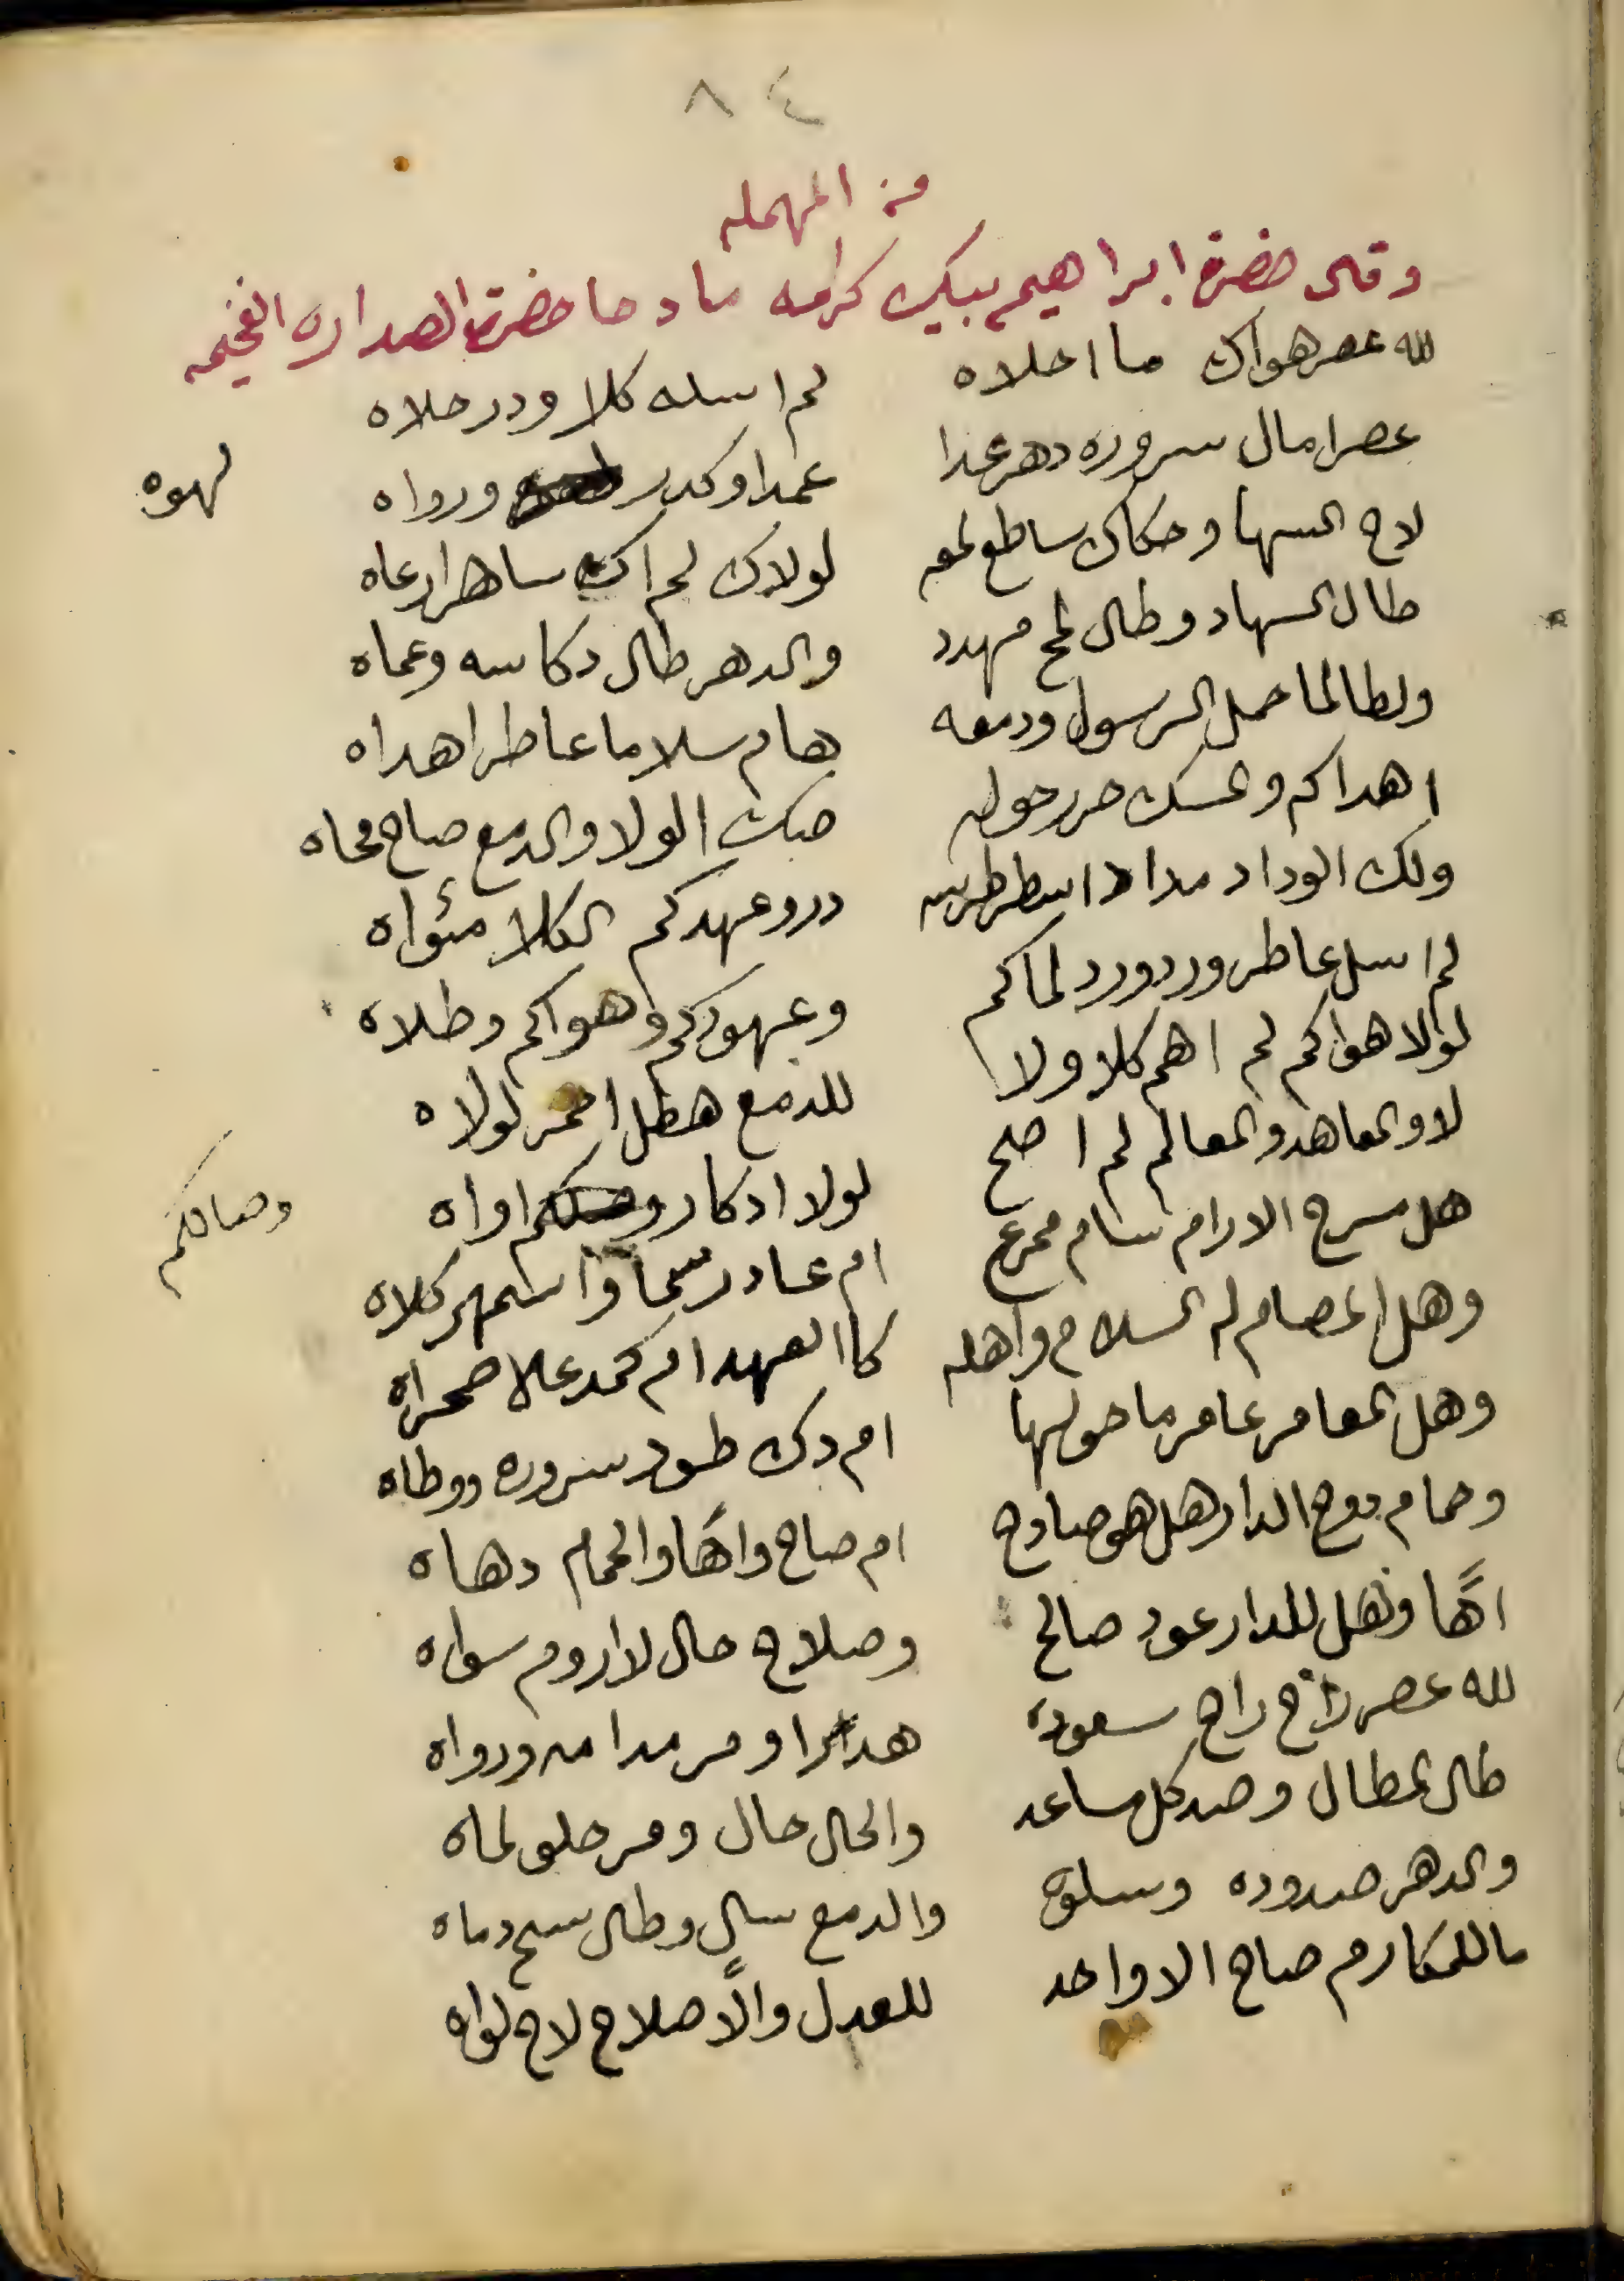 ٨٤
من المهمله
وقال حضرة ابراهيم بيك كرامه مادحا حضرة الصداره الفخيمه
لله عصر هواك ما احلاه لم اسله كلا ودر حلاه
عصرا مال سروره دهر عدا عمدا وكدر ورواه لهوه
لاح السها وحكاك ساطع لمعه لولاك لم اك ساهرا ارعاه
طال السهاد وطال لمح مهدد والدهر طال دكاسه وعماه
ولطالما حمل الرسول ودمعه هام سلاما عاطرا اهداه
اهداكم والمسك حرر حوله صك الولا والدمع صاح محاه
ولك الوداد مدادا سطر طرسه درو عهدكم الكلا مئواه
لم اسل عاطر ورد ورد لماكم وعهودكم وهواكم وطلاه
لولا هواكم لم اهم كلا ولا للدمع هطل احمر لولاه
لا والمعاهد والمعالم لم اصح لولا ادكار اواه وصالكم
هل مسرح الارام سام ممرع ام عاد رسما واسمهر كلاه
وهل العصام له السلام واهله كا العهد ام كمد علا صحراه
وهل المعامر عامر ما حولها ام دك طود سروره ووطاه
وحمام دوح الدار هل هو صادح ام صاح واها والحمام دهاه
اها وهل للدار عود صالح وصلاح حال لا اروم سواه
لله عصر راح راح سعوده هدرا ومر مدامه ورواه
طال المطال وصد كل مساعد والحال حال ومر حلو لماه
والدهر صدوده وسلوه والدمع سال وطال سح دماه
ما للمكارم صاح الا واحد للعدل والاصلاح لاح لواه